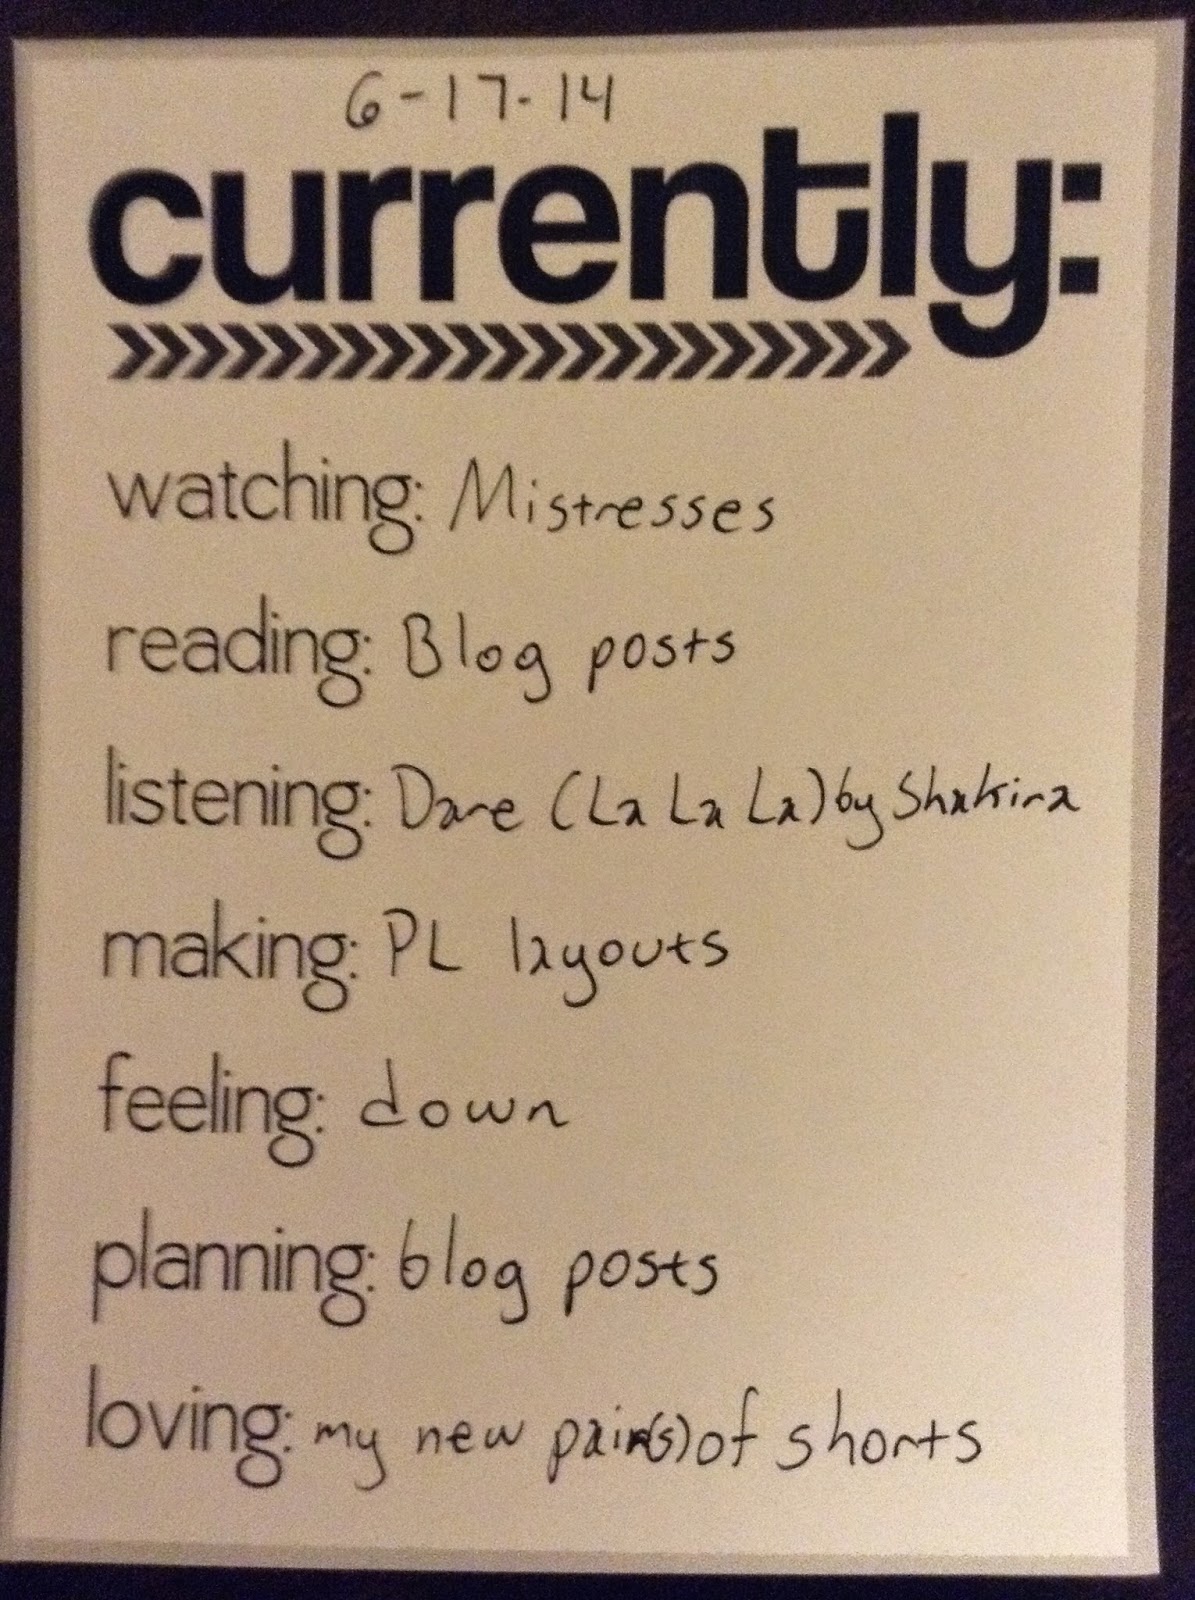 6-17-14
currently:
watching: Mistresses
reading: Blog posts
listening: Dare (La La La) by Shakira
making: PL layouts
feeling: down
planning: blog posts
loving: my new pair(s) of shorts